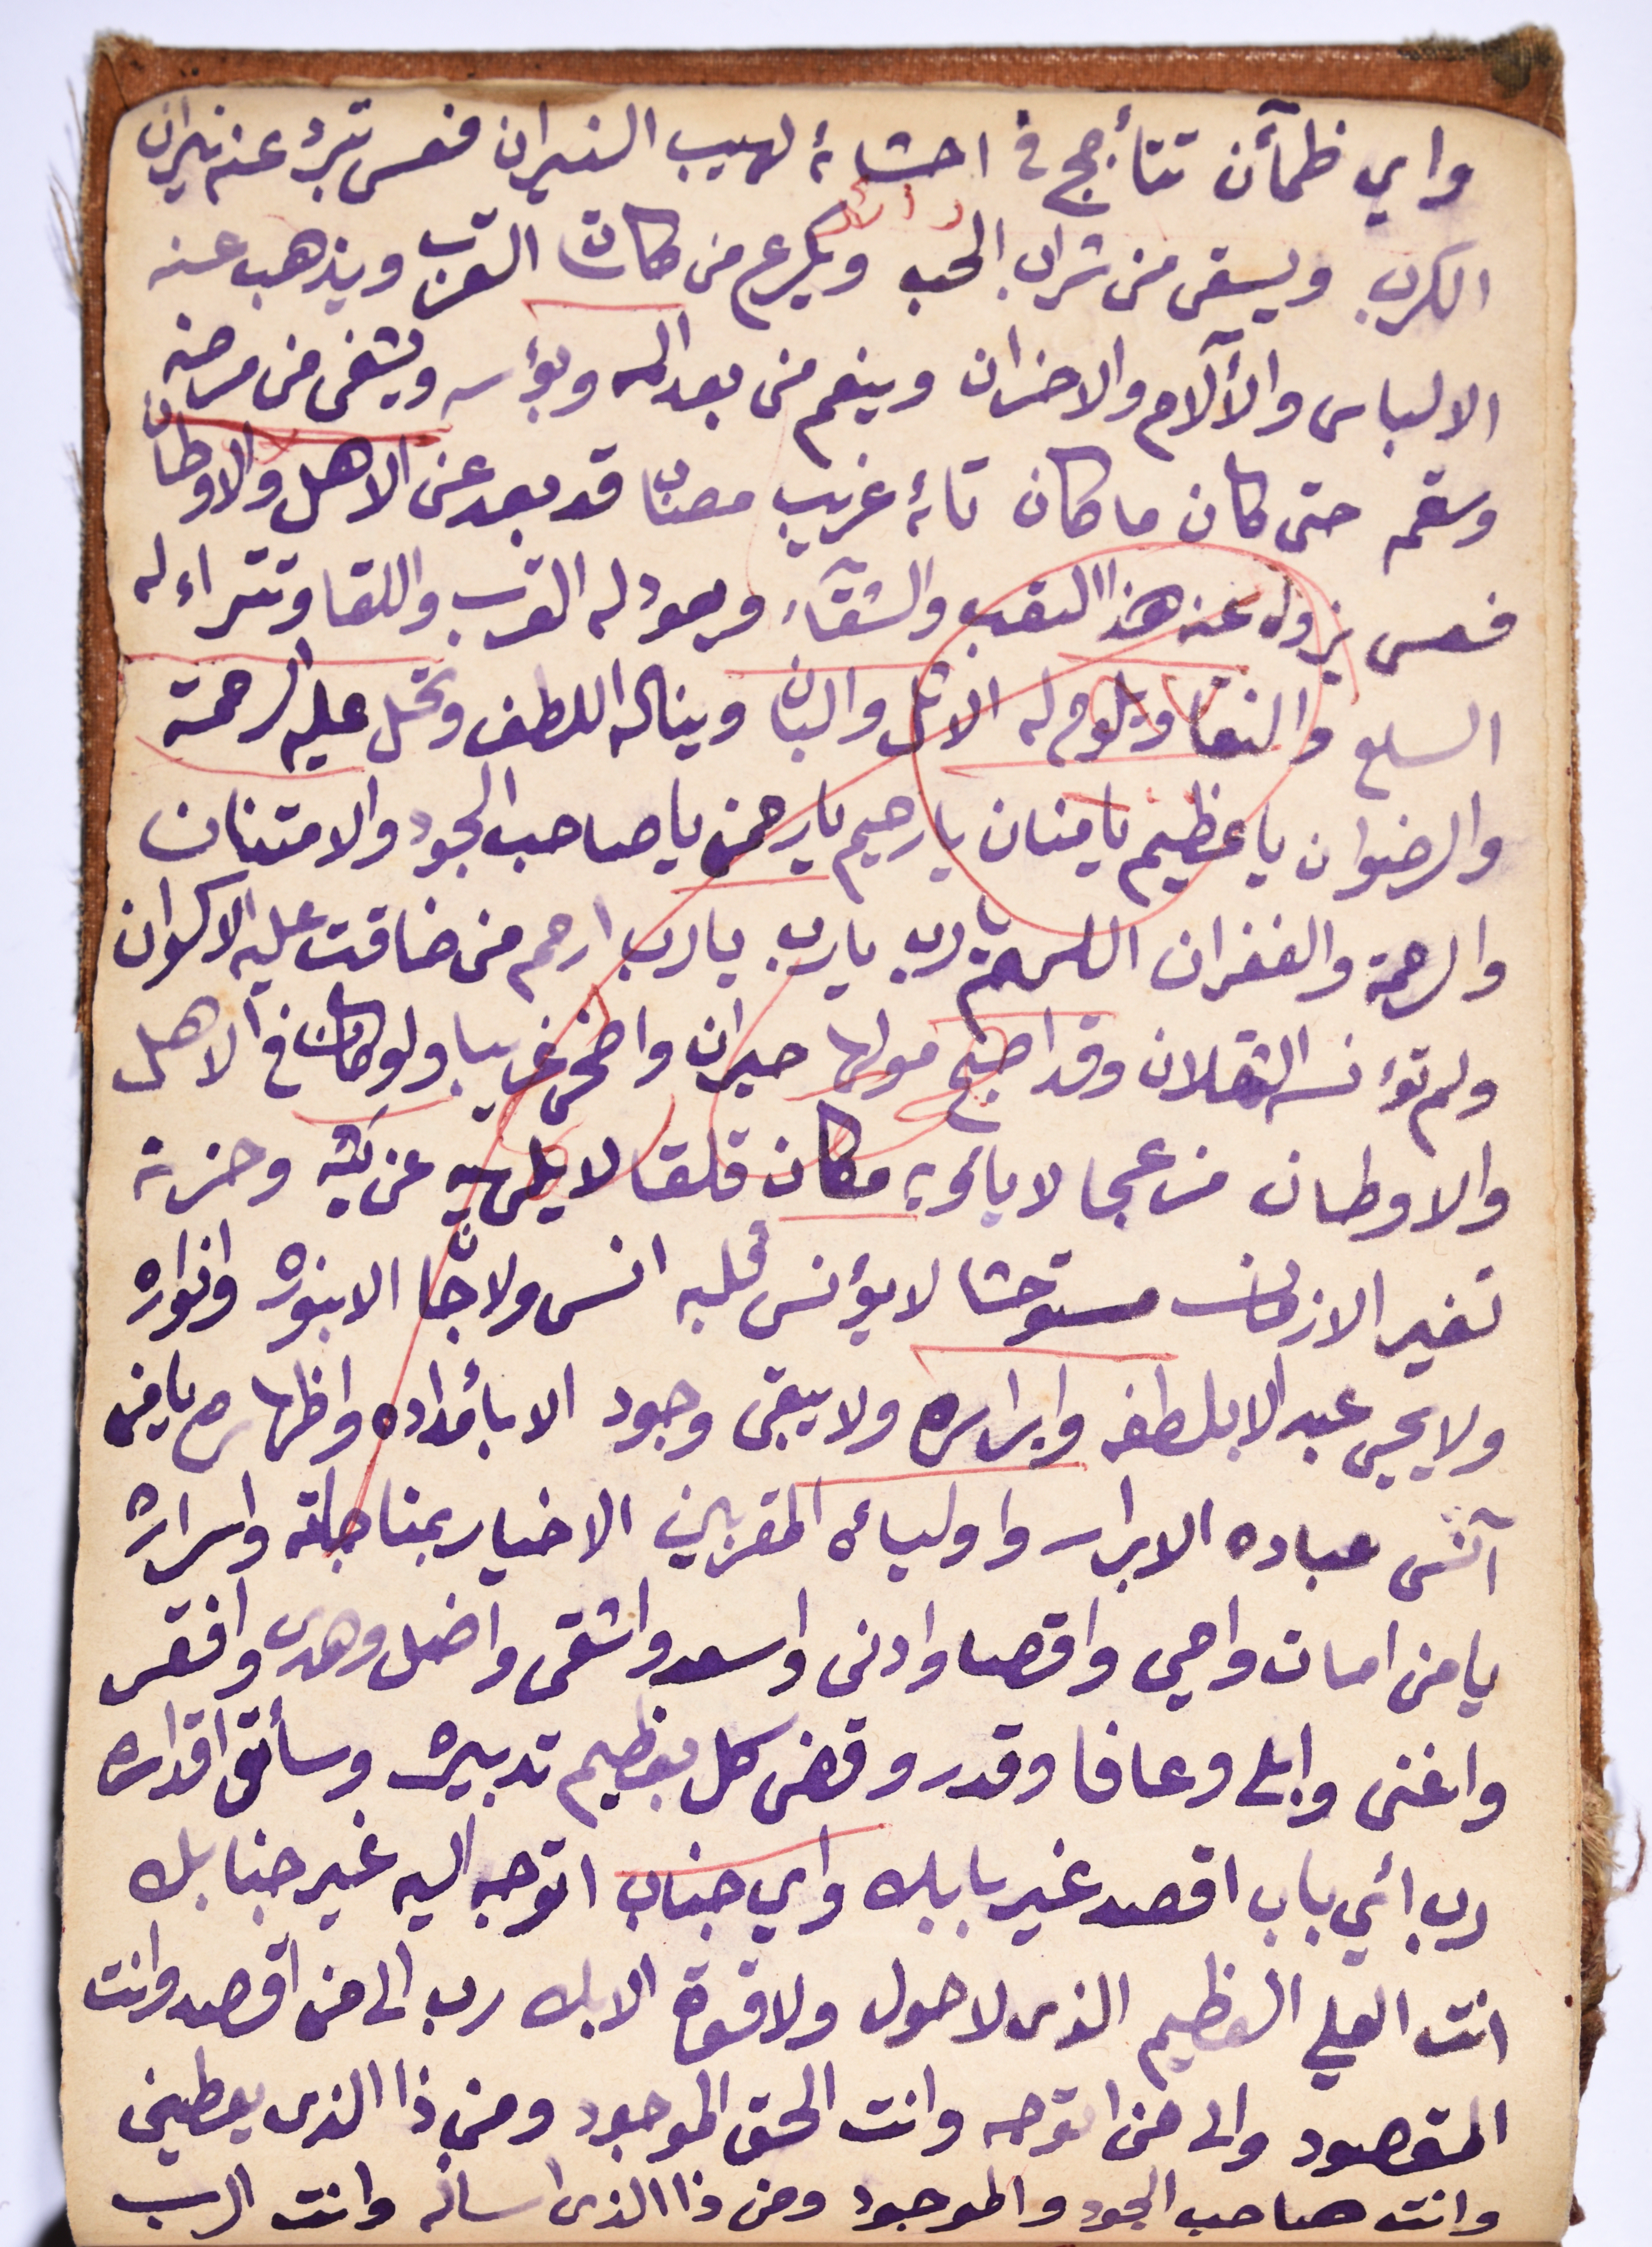 واي ظمآن تتأجج في احشائه لهيب النيران فعسى تبرد عنه نيران
الكرب ويسقى من شراب الحب ويكرع من كاسات القرب ويذهب عنه
الالباس والآلام والاحزان وينعم من بعد المه وبؤسه ويشفى من مرضه
وسقمه حتى كان ما كان تائه غريب مصاب قد بعد عن الاهل والاوطان
فعسى يزول عنه هذا التعب والشقآء ويعود له القرب واللقا وتتراءا له
السلع والنقا ويلوح له الاثل والبان ويناله اللطف وتحل عليه الرحمة
والرضوان يا عظيم يا منان يا رحيم يا رحمن يا صاحب الجود والامتنان
والرحمة والغفران اللهم يا رب يا رب يا رب ارحم من ضاقت عليه الاكوان
ولم تؤنسه الثقلان وقد اصبح مولها حيران واضحى غريبا ولو كان في الاهل
والاوطان مزعجا لا ياويه مكان قلقا لا يلهيه عن بثه وحزنه
تغير الازمان مستوحشا لا يؤنس قلبه انس ولا جان الا بنوره وانواره
ولا يحيى عبد الا بلطفه وابراره ولا يبقى وجود الا بأمداده واظهاره يا من
آنس عباده الابرار واوليائه المقربين الاخيار بمناجاته واسراره
يا من امات واحيى واقصا وادنى واسعد واشقى واضل وهدى وافقر
واغنى وابلى وعافا وقدر وقضى كل بعظيم تدبيره وسائق اقداره
رب ائي باب اقصد غير بابك واي جناب اتوجه اليه غير جنابك
انت العلي العظيم الذى لا حول ولا قوة الا بك رب الى من اقصد وانت
المقصود والى من اتوجه وانت الحق الموجود ومن ذا الذى يعطيني
وانت صاحب الجود والموجود ومن ذا الذى اساله وانت الرب